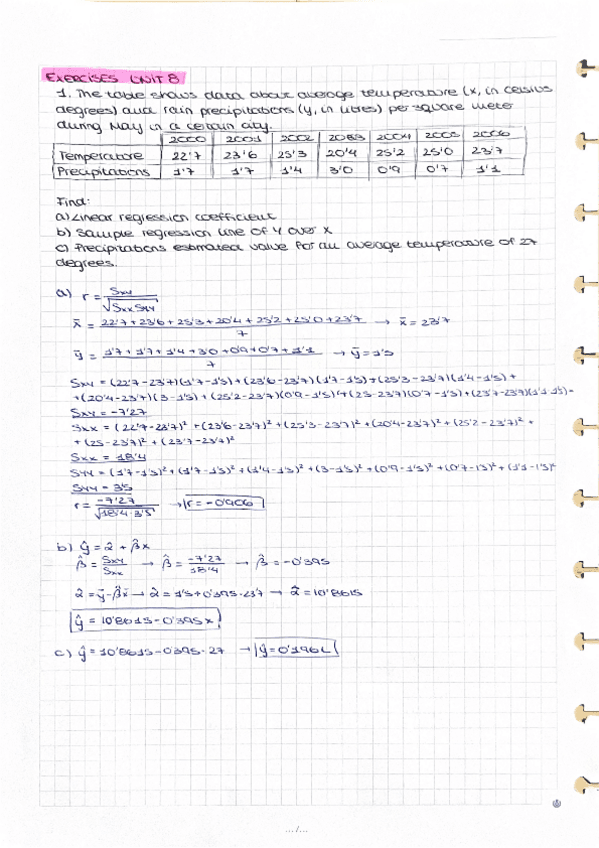 EXERCISES UNIT 8
1. The table shows data about average temperature (x, in celsius
degrees) and rain precipitations (y, in litres) per square meter
during May in a certain city.
2000 2001 2002 2003 2004 2005 2006
Temperature 22'7 23'6 25'3 20'4 25'2 25'0 23'7
Precipitations 1'7 1'7 1'4 3'0 0'9 0'7 1'1
Find:
a) Linear regression coefficient
b) Sample regression line of Y over X
c) Precipitations estimated value for an average temperature of 27
degrees.
a) r = Sxy / √SxxSyy
x̄ = 22'7+23'6+25'3+20'4+25'2+25'0+23'7 / 7 → x̄ = 23'7
ȳ = 1'7+1'7+1'4+3'0+0'9+0'7+1'1 / 7 → ȳ = 1'5
Sxy = (22'7-23'7)(1'7-1'5)+(23'6-23'7)(1'7-1'5)+(25'3-23'7)(1'4-1'5)+
+(20'4-23'7)(3-1'5)+(25'2-23'7)(0'9-1'5)+(25-23'7)(0'7-1'5)+(23'7-23'7)(1'1-1'5)=
Sxy = -7'27
Sxx = (22'7-23'7)² +(23'6-23'7)² +(25'3-23'7)² +(20'4-23'7)² +(25'2-23'7)² +
+ (25-23'7)² + (23'7-23'7)²
Sxx = 18'4
Syy = (1'7-1'5)² +(1'7-1'5)² +(1'4-1'5)² +(3-1'5)² +(0'9-1'5)² +(0'7-1'5)² +(1'1-1'5)²
Syy = 3'5
r = -7'27 / √18'4·3'5 → r = -0'906
b) ŷ = α̂ + β̂x
β̂ = Sxy / Sxx → β̂ = -7'27 / 18'4 → β̂ = -0'395
α̂ = ȳ-β̂x̄ → α̂ = 1'5+0'395·23'7 → α̂ = 10'8615
ŷ = 10'8615-0'395x
c) ŷ = 10'8615-0'395·27 → ŷ = 0'196 L
.../...